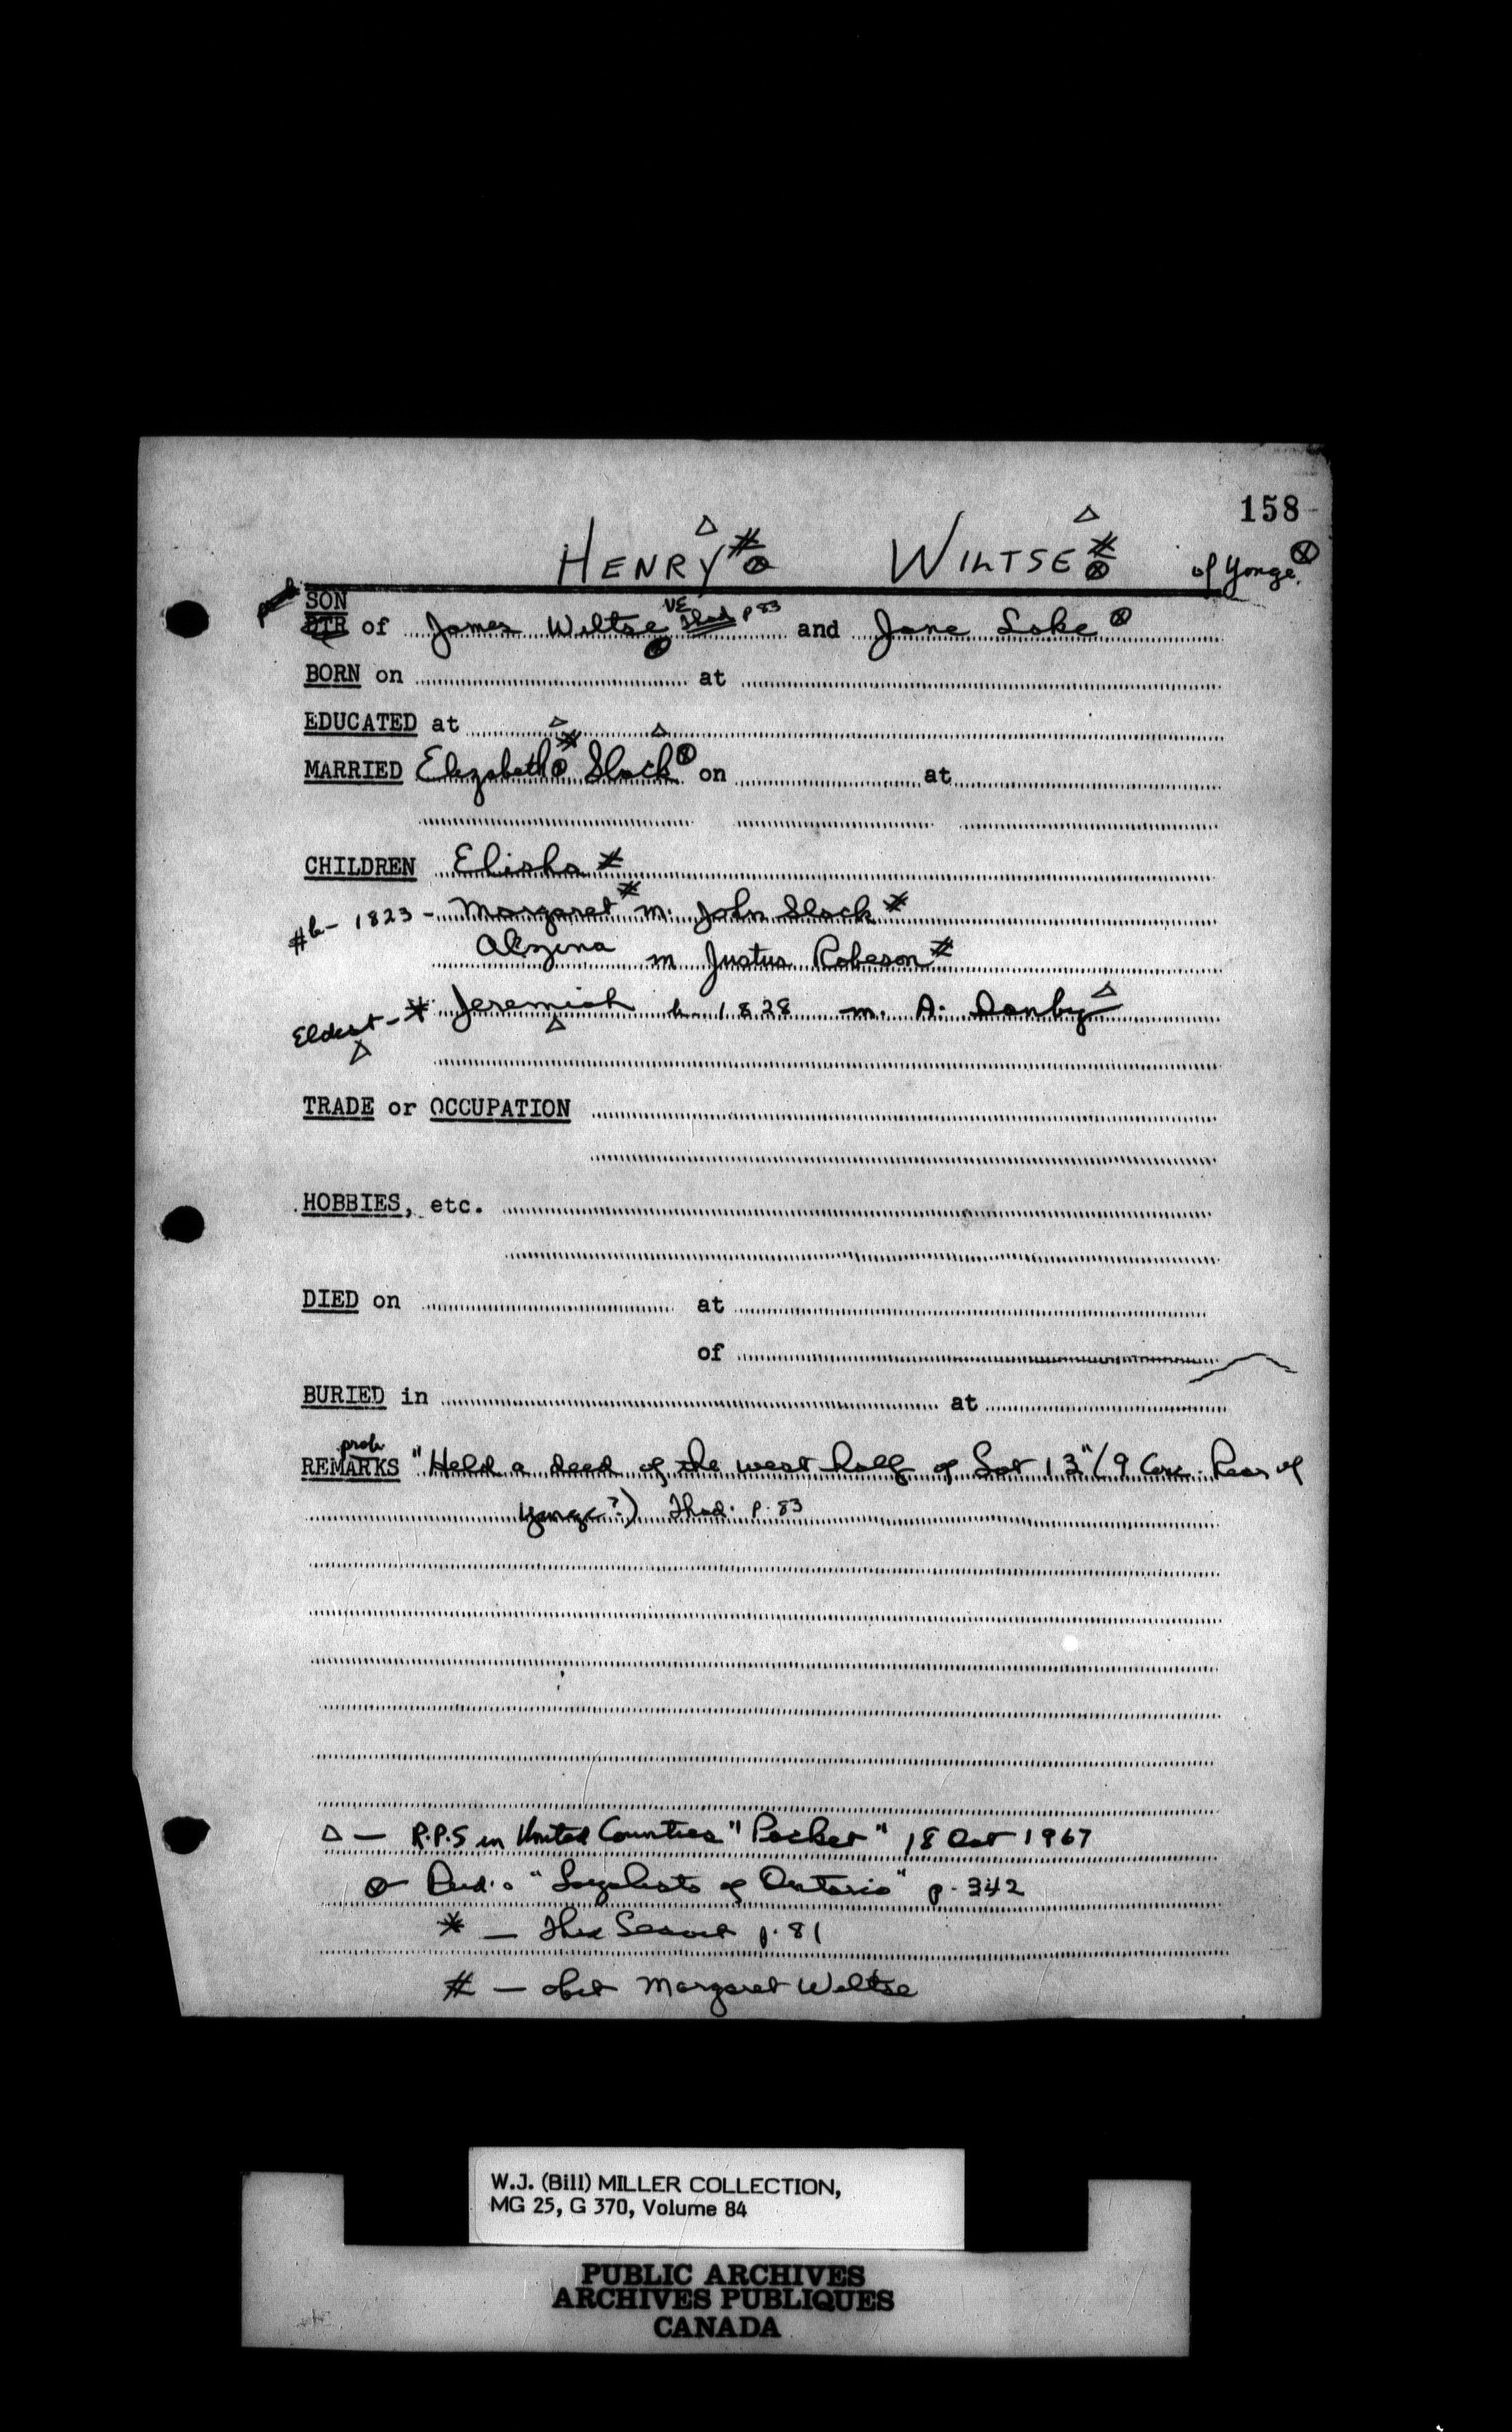 158
HENRY △ # ⊗ WILTSE △ # ⊗ of Yonge ⊗
SON
DTR of James Wiltse UE Thad p 83 ⊗ and Jane Loke ⊗
BORN on at
EDUCATED at
MARRIED Elizabeth △ # ⊗ Slack △ ⊗ on at
CHILDREN Elisha #
# b - 1823 - Margaret # m. John Slack #
Alzina m Justus Robeson #
Eldest △ - * Jeremiah △ b 1828 m. A. Danby △
TRADE or OCCUPATION
HOBBIES, etc.
DIED on at
of
BURIED in at
prob
REMARKS "Held a deed of the west half of Lot 13" (9 Con. Rear of
Yonge?) Thad. p. 83
△ - R.P.S in United Counties "Packet" 18 Oct 1967
⊗ Reid's "Loyalists of Ontario" p. 342
* - Thad p. 81
# - obit Margaret Wiltse
W.J. (Bill) MILLER COLLECTION,
MG 25, G 370, Volume 84
PUBLIC ARCHIVES
ARCHIVES PUBLIQUES
CANADA